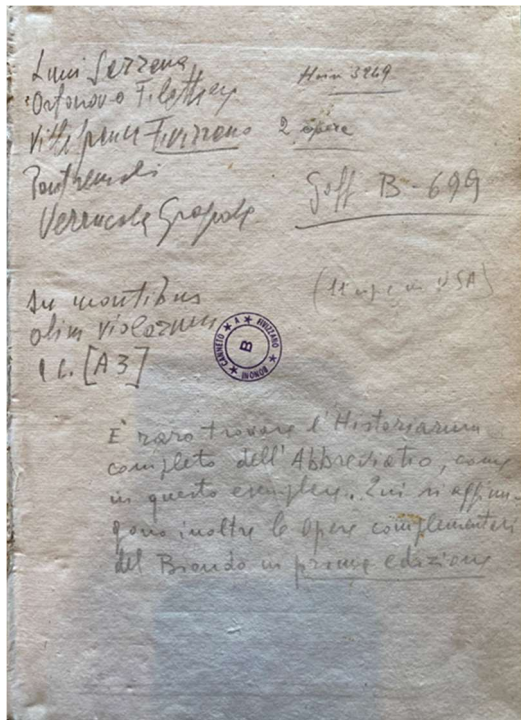 Luni Sarzana
Ortonovo Filattiera
Villafranca Fivizzano
Pontremoli
Verrucola Gragnola
Hain 3249
2 opere
Goff B-699
(11 in USA)
In montibus
olim violarum
c. [A3]
CANNETO ★ A ★ FIVIZZANO ★ BONONI ★
B
È raro trovare l'Historiarum
completo dell'Abbreviatio, come
in questo esemplare. Qui si aggiun-
gono inoltre le opere complementari
del Biondo in prima edizione